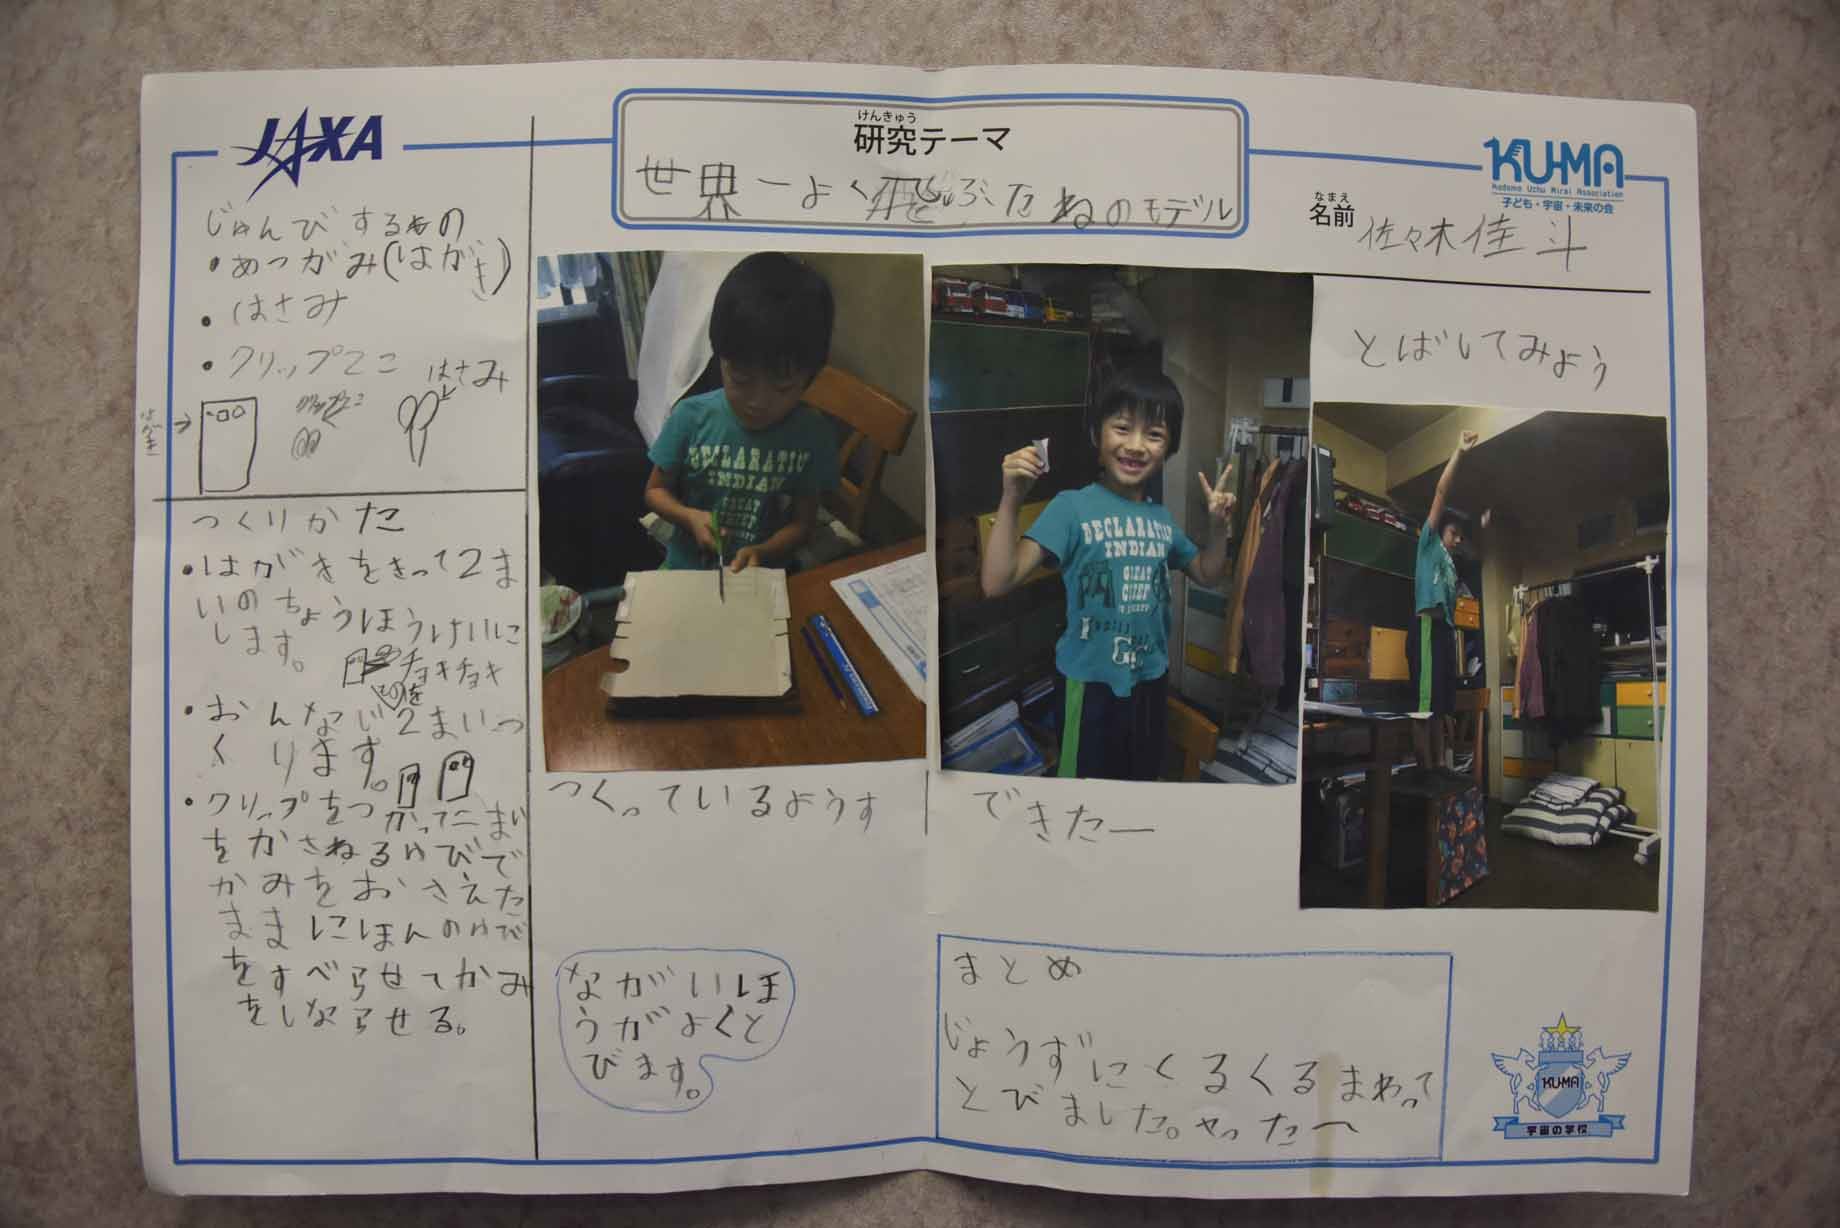 JAXA
けんきゅう
研究テーマ
世界一よく飛ぶたねのモデル
KU-MA
Kodomo Uchu Mirai Association
子ども・宇宙・未来の会
なまえ
名前 佐々木佳斗
じゅんびするもの
・あつがみ(はがき)
・はさみ
・クリップ2こ
はさみ
はがき
つくりかた
・はがきをきって2ま
いのちょうほうけいに
します。
チョキチョキ
・おんなじものを2まいつ
くります。
・クリップをつかって二まい
をかさねるゆびで
かみをおさえた
ままにほんのゆび
をすべらせてかみ
をしならせる。
DECLARATIO
INDIAN
GREAT
つくっているようす
DECLARATIO
INDIAN
GREAT
CHIEF
できたー
とばしてみよう
ながいほ
うがよくと
びます。
まとめ
じょうずにくるくるまわって
とびました。やったー
KU-MA
宇宙の学校